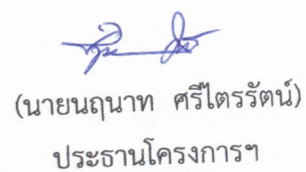 (นายนฤนาท ศรีไตรรัตน์)
ประธานโครงการฯ